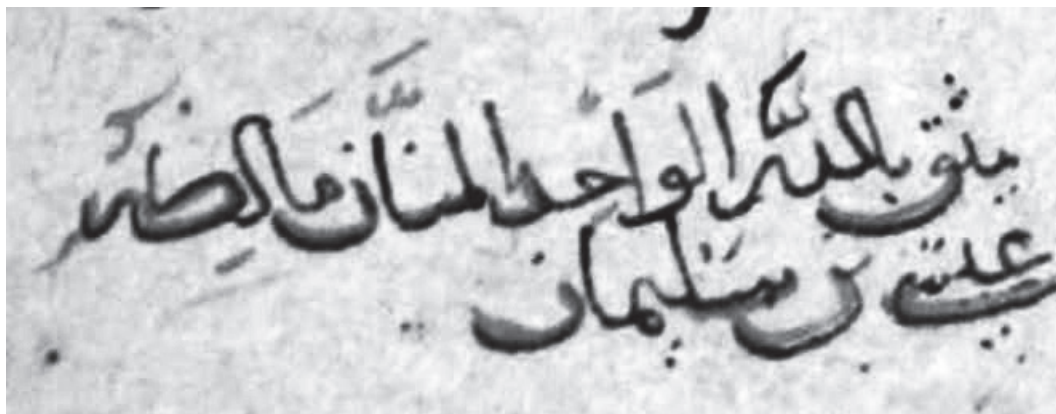 يثق بالله الواحد المنان مالك الظهر
عيسى بن سليمان